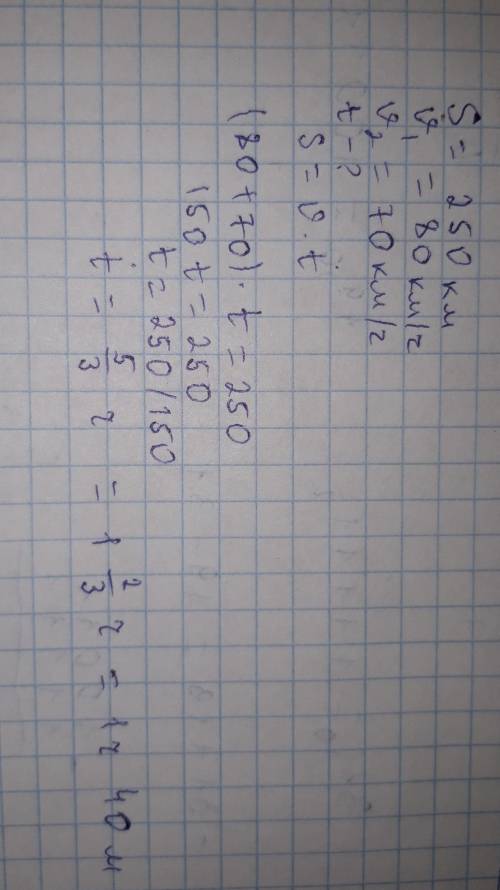 S = 250 км
υ₁ = 80 км/г
υ₂ = 70 км/г
t - ?
S = υ · t
(80 + 70) · t = 250
150 t = 250
t = 250 / 150
t = 5/3 г = 1 2/3 г = 1 г 40 м